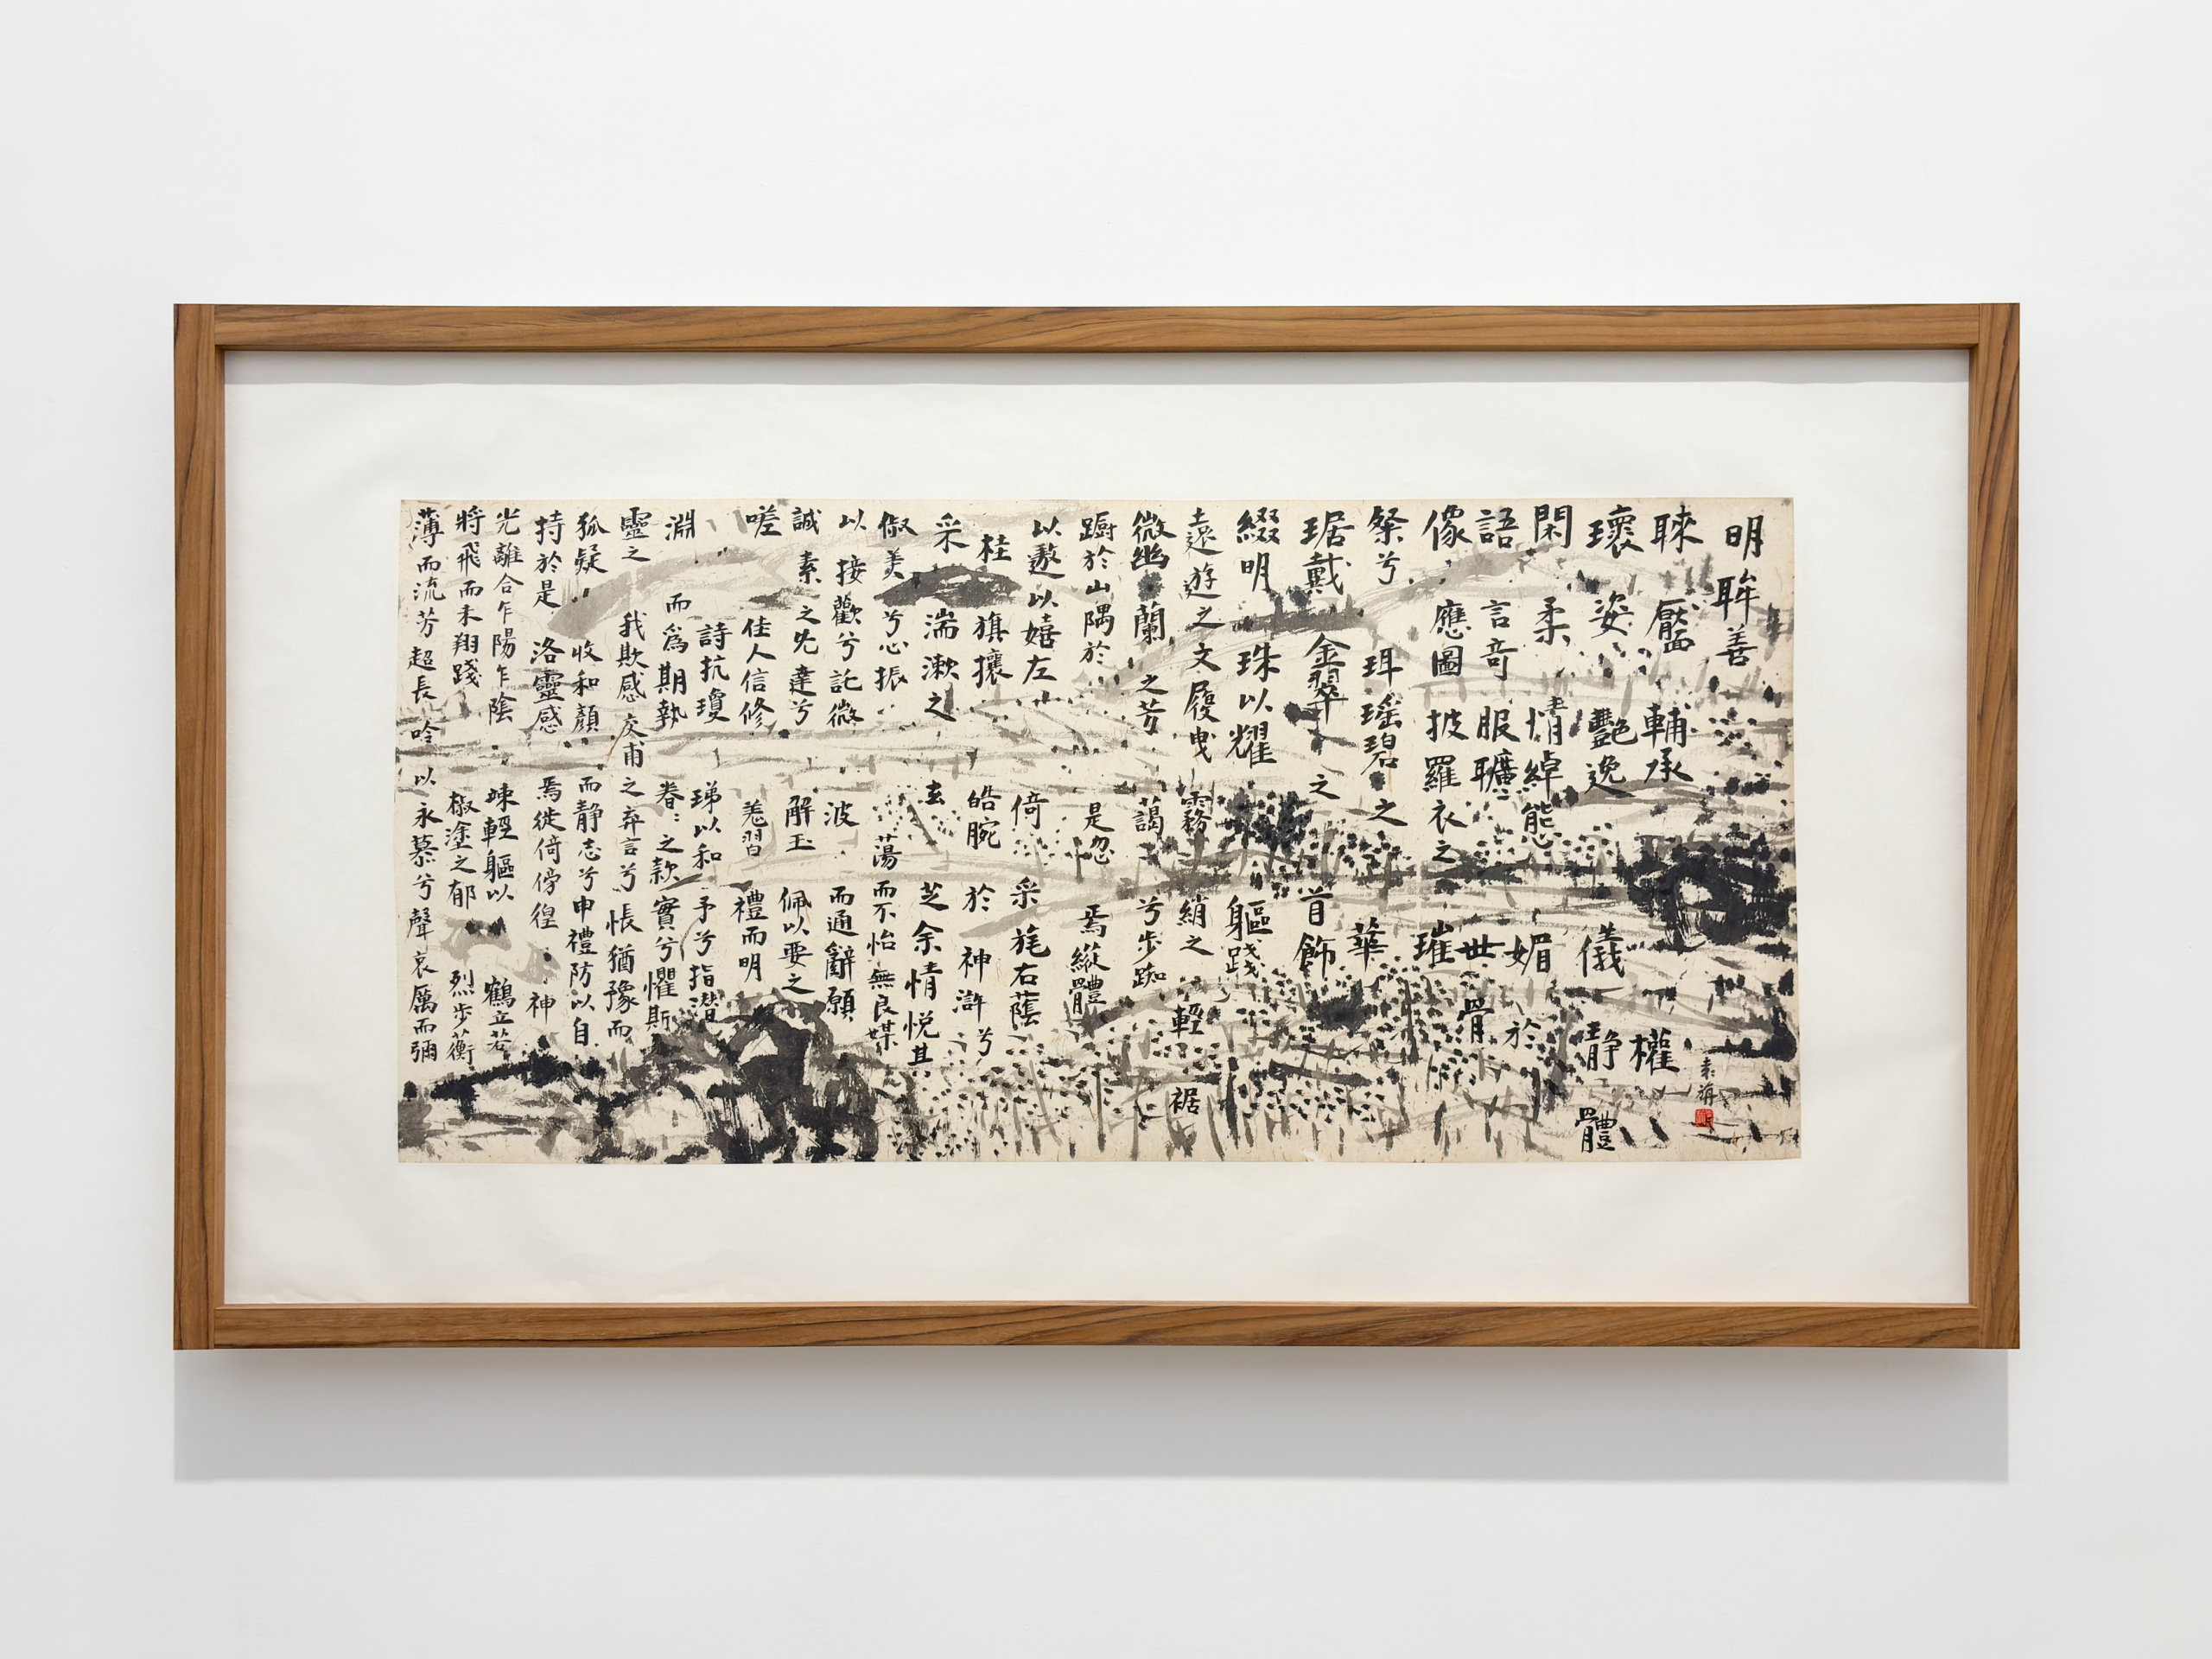 明眸善
睞靨輔承權
瓌姿艷逸儀静體
閑柔情綽態媚於
語言奇服曠世骨
像應圖披羅衣之璀
粲兮珥瑶碧之華
琚戴金翠之首飾
綴明珠以耀軀踐
遠遊之文履曳霧綃之輕裾
微幽蘭之芳藹兮步踟
躕於山隅於是忽焉縱體
以遨以嬉左倚采旄右蔭
桂旗攘皓腕於神滸兮
采湍漱之玄芝余情悦其
俶美兮心振蕩而不怡無良媒
以接歡兮託微波而通辭願
誠素之先達兮解玉佩以要之
嗟佳人信修羌習禮而明
詩抗瓊珶以和予兮指潛
淵而爲期執眷:之款實兮懼斯
靈之我欺感交甫之弃言兮悵猶豫而
狐疑收和顏而静志兮申禮防以自
持於是洛靈感焉徙倚傍徨:神
光離合乍陽乍陰竦輕軀以鶴立若
將飛而未翔踐椒塗之郁烈步蘅
薄而流芳超長吟以永慕兮聲哀厲而彌